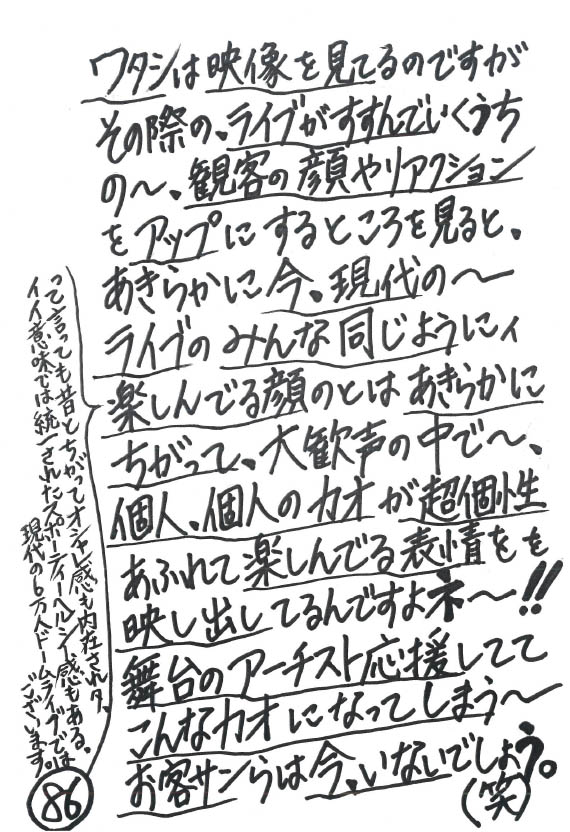 ワタシは映像を見てるのですが
その際の、ライブがすすんでいくうち
の〜、観客の顔やリアクション
をアップにするところを見ると、
あきらかに今、現代の〜
ライブのみんな同じようにィ
楽しんでる顔のとはあきらかに
ちがって、大歓声の中で〜、
個人、個人のカオが超個性
あふれて楽しんでる表情をを
映し出してるんですよネ〜!!
舞台のアーチスト応援してて
こんなカオになってしまう〜
お客サンらは今、いないでしょう。
(笑)
って言っても昔とちがってオシャレ感も内在されタ、
イイ意味では統一されたスポーティーヘルシー感もある。
現代の6万人ドームライブでは
ございます。
86